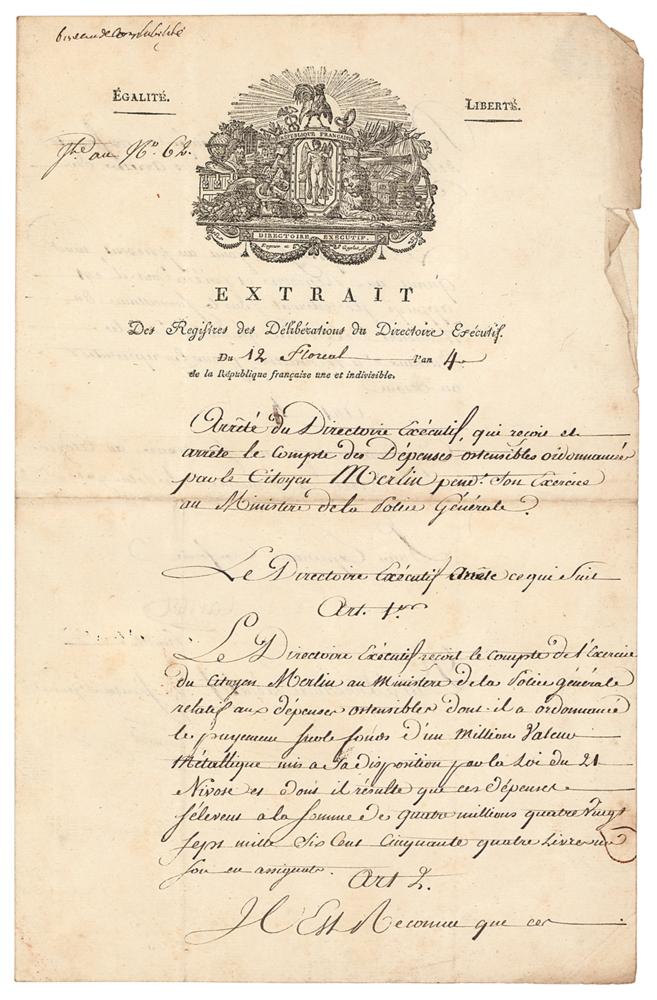 bureau de Comptabilité
ÉGALITÉ.
LIBERTÉ.
Jt. au Nº. 62.
RÉPUBLIQUE FRANÇAISE
DIRECTOIRE EXÉCUTIF.
EXTRAIT
Des Registres des Délibérations du Directoire Exécutif.
Du 12 floreal l'an 4e
de la République française une et indivisible.
Arrêté du Directoire Exécutif, qui reçoit et
arrête le Compte des Dépenses ostensibles ordonnancées
par le Citoyen Merlin pendt. Son Exercice
au Ministere de la Police Générale.
Le Directoire Exécutif Arrête ce qui Suit
Art. 1er
Le Directoire Exécutif reçoit le compte de l'Exercice
du Citoyen Merlin au Ministere de la Police générale
relatif aux dépenses ostensibles dont il a ordonnancé
le payement sur le fonds d'un Million Valeur
Métallique mis a Sa disposition par la Loi du 21
Nivose et dont il résulte que ces dépenses
s'élevent a la Somme de quatre millions quatre Vingt
Sept mille Six Cent Cinquante quatre Livres un
Sou en assignats.
Art 2.
Il Est Reconnu que ces